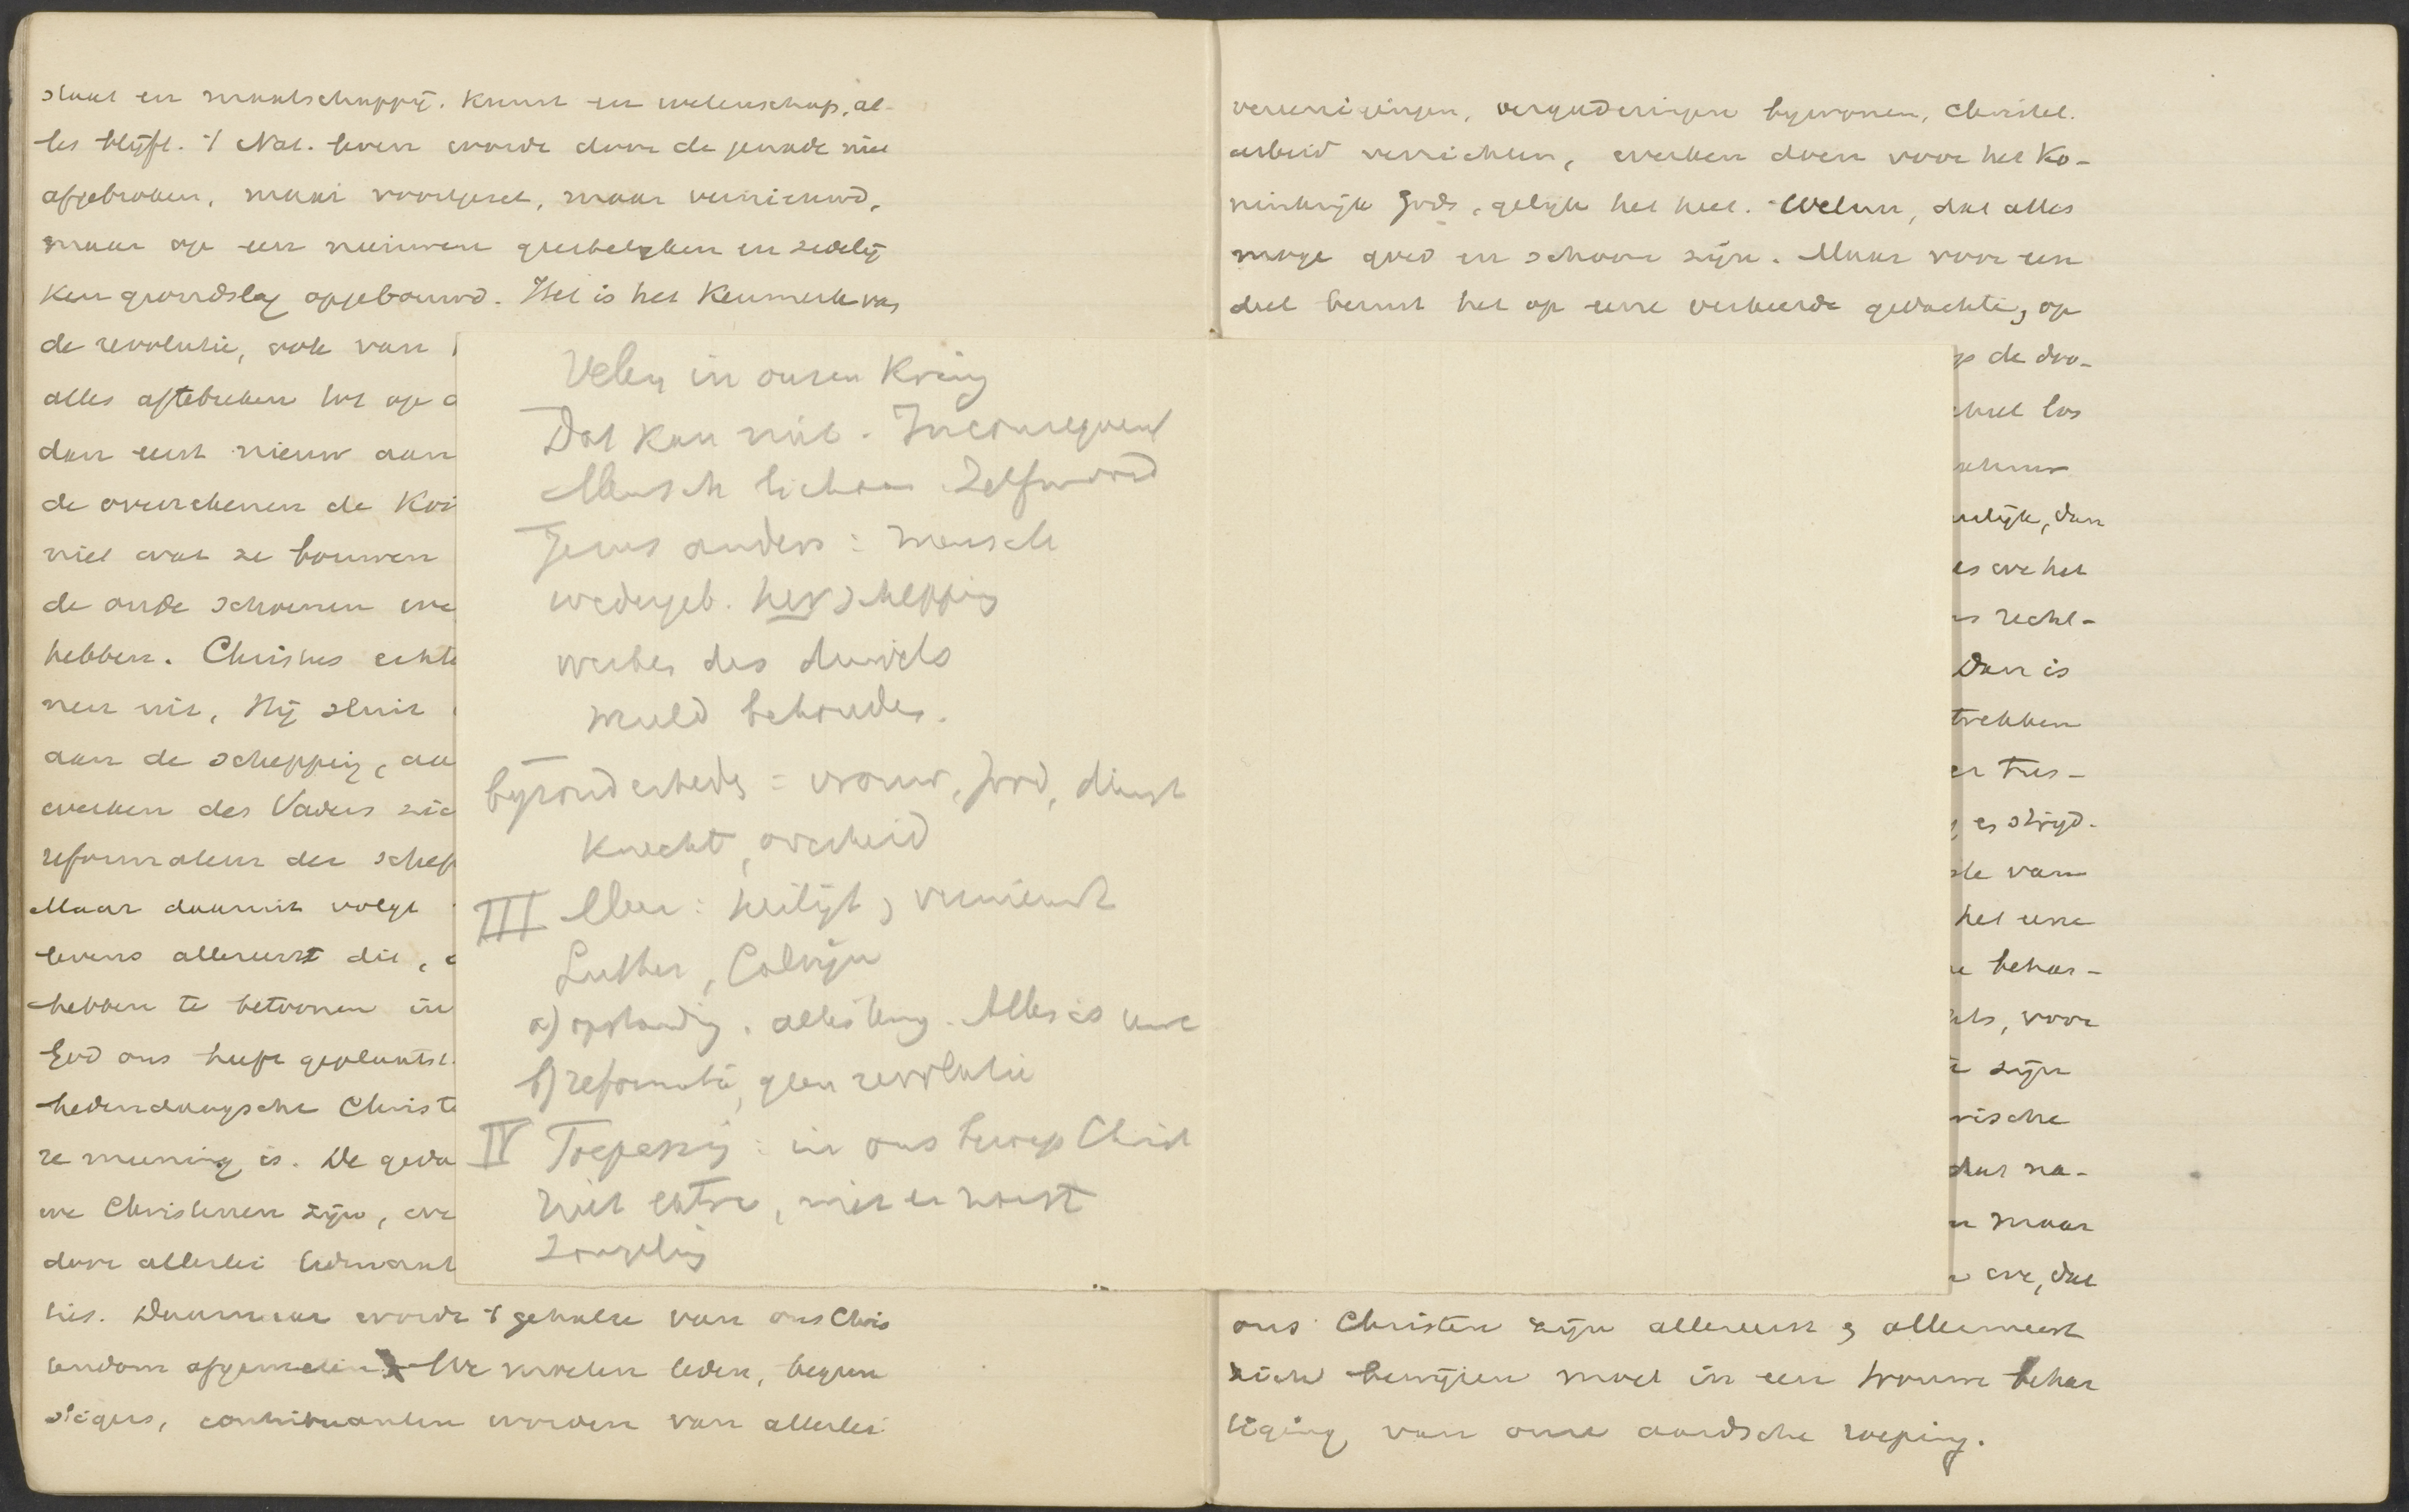 staat en maatschappij. Kunst en wetenschap, al-
les blijft. 't Nat. leven wordt door de genade niet
afgebroken, maar voortgezet, maar vernieuwd,
maar op een nieuwen geestelyken en zedelij
ken grondslag opgebouwd. Het is het Kenmerk van
de revolutie, ook van
alles aftebreken tot op
dan eerst nieuw aan
de overschenen de
niet wat ze bouwen
de oude schoenen
hebben. Christus echt
niet, Hij sluit
aan de schepping, aa
werken des Vaders
reformateur der schep
Maar daaruit volgt
levens allereerst dit,
hebben te betoonen in
God ons heeft geplaatst.
hedendaagsche Christ
re meening is. De geda
we Christenen zijn,
door allerlei
lies. Daarnaar wordt 't gehalte van ons Chris
tendom afgemeten. We moeten leden, begun
stigers, contribuanten worden van allerlei
Velen in onzen Kring
Dat kan niet. Inconsequent
Mensch lichaam Zelfmoord
Jezus anders: mensch
wedergeb. herschepping
werken des duivels
wereld behouden.
byzonderheden = vrouw, Jood, dienst
Knecht, overheid
III Meer: heiligt, vernieuwt
Luther, Calvijn
a) opstanding. alles terug. Alles is uwe
b) reformatie, geen revolutie
IV Toepassing: in ons beroep Christ
Niet extra, niet
vereenigingen, vergaderingen bywonen, Christel.
arbeid verrichten, werken doen voor het Ko-
ninkrijk Gods, gelijk het heet. Welnu, dat alles
moge goed en schoon zijn. Maar voor een
deel berust het op eene verkeerde gedachte, op
de
los
, dan
we het
recht-
Dan is
trekken
tus-
strijd.
van
het eene
, voor
zijn
ische
dat na-
maar
we, dat
ons Christen zijn allereerst en allermeest
zich bewijzen moet in een trouwe behar
tiging van onze aardsche roeping.